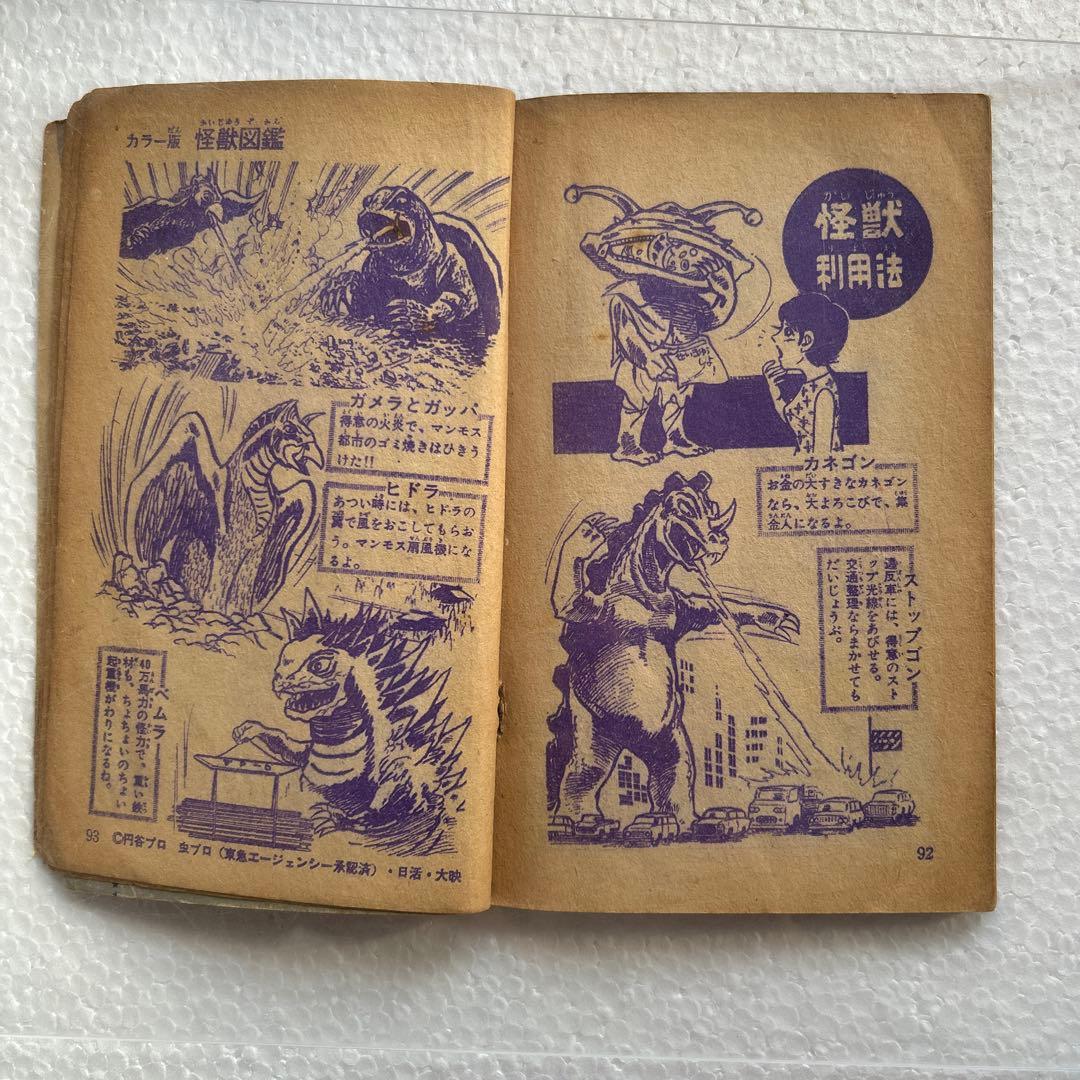 怪獣
利用法
カネゴン
お金の大すきなカネゴン
なら、大よろこびで、集
金人になるよ。
ストップゴン
違反車には、得意のスト
ップ光線をあびせる。
交通整理ならまかせても
だいじょうぶ。
92
カラー版 怪獣図鑑
ガメラとガッパ
得意の火炎で、マンモス
都市のゴミ焼きはひきう
けた!!
ヒドラ
あつい時には、ヒドラの
翼で風をおこしてもらお
う。マンモス扇風機にな
るよ。
ベムラー
40万馬力の怪力で、重い鉄
材も、ちょちょいのちょい
起重機がわりになるね。
93 ©円谷プロ 虫プロ(東急エージェンシー承認済)・日活・大映